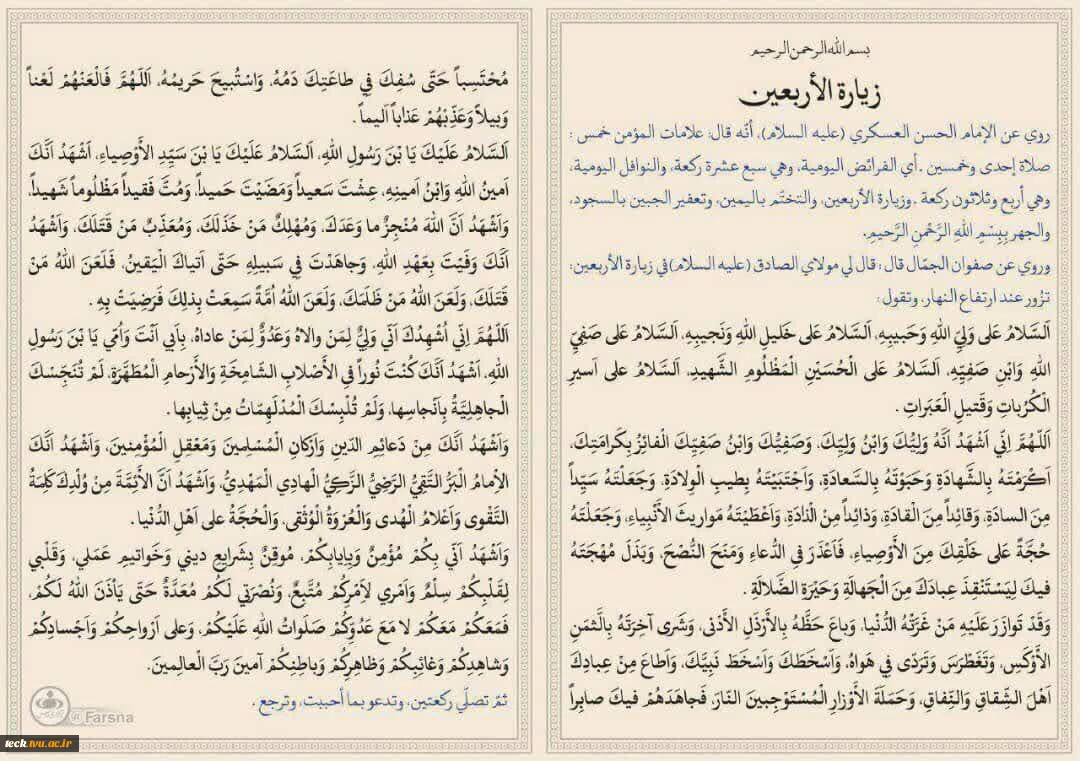 بسم الله الرحمن الرحيم
زيارة الأربعين
روي عن الإمام الحسن العسكري (عليه السلام)، أنّه قال: علامات المؤمن خمس :
صلاة إحدى وخمسين ـ أي الفرائض اليومية، وهي سبع عشرة ركعة، والنوافل اليومية،
وهي أربع وثلاثون ركعة ـ وزيارة الأربعين، والتختّم باليمين، وتعفير الجبين بالسجود،
والجهر بِبِسْمِ اللهِ الرَّحْمٰنِ الرَّحيمِ.
وروي عن صفوان الجمّال قال : قال لي مولاي الصادق (عليه السلام) في زيارة الأربعين:
تزُور عند ارتفاع النهار، وتقول:
اَلسَّلامُ عَلى وَلِيِّ اللهِ وَحَبيبِهِ، اَلسَّلامُ عَلى خَليلِ اللهِ وَنَجيبِهِ، اَلسَّلامُ عَلى صَفِيِّ
اللهِ وَابْنِ صَفِيِّهِ، اَلسَّلامُ عَلى الْحُسَيْنِ الْمَظْلُومِ الشَّهيدِ، اَلسَّلامُ على اَسيرِ
الْكُرُباتِ وَقَتيلِ الْعَبَراتِ .
اَللّهُمَّ اِنّي اَشْهَدُ اَنَّهُ وَلِيُّكَ وَابْنُ وَلِيِّكَ، وَصَفِيُّكَ وَابْنُ صَفِيِّكَ الْفائِزُ بِكَرامَتِكَ،
اَكْرَمْتَهُ بِالشَّهادَةِ وَحَبَوْتَهُ بِالسَّعادَةِ، وَاَجْتَبَيْتَهُ بِطيبِ الْوِلادَةِ، وَجَعَلْتَهُ سَيِّداً
مِنَ السادَةِ، وَقائِداً مِنَ الْقادَةِ، وَذائِداً مِنْ الْذادَةِ، وَاَعْطَيْتَهُ مَواريثَ الأَنْبِياءِ، وَجَعَلْتَهُ
حُجَّةً عَلى خَلْقِكَ مِنَ الأَوْصِياءِ، فَاَعْذَرَ فىِ الدُّعاءِ وَمَنَحَ النُّصْحَ، وَبَذَلَ مُهْجَتَهُ
فيكَ لِيَسْتَنْقِذَ عِبادَكَ مِنَ الْجَهالَةِ وَحَيْرَةِ الضَّلالَةِ .
وَقَدْ تَوازَرَ عَلَيْهِ مَنْ غَرَّتْهُ الدُّنْيا، وَباعَ حَظَّهُ بِالأَرْذَلِ الأَدْنى، وَشَرى آخِرَتَهُ بِالَّثمَنِ
الأَوْكَسِ، وَتَغَطْرَسَ وَتَرَدّى فِي هَواهُ، وَاَسْخَطَكَ وَاَسْخَطَ نَبِيَّكَ، وَاَطاعَ مِنْ عِبادِكَ
اَهْلَ الشِّقاقِ وَالنِّفاقِ، وَحَمَلَةَ الأَوْزارِ الْمُسْتَوْجِبينَ النّارَ، فَجاهَدَهُمْ فيكَ صابِراً
مُحْتَسِباً حَتّى سُفِكَ فِي طاعَتِكَ دَمُهُ، وَاسْتُبيحَ حَريمُهُ، اَللّهُمَّ فَالْعَنْهُمْ لَعْناً
وَبيلاً وَعَذِّبْهُمْ عَذاباً اَليماً .
اَلسَّلامُ عَلَيْكَ يَا بْنَ رَسُولِ اللهِ، اَلسَّلامُ عَلَيْكَ يَا بْنَ سَيِّدِ الأَوْصِياءِ، اَشْهَدُ اَنَّكَ
اَمينُ اللهِ وَابْنُ اَمينِهِ، عِشْتَ سَعيداً وَمَضَيْتَ حَميداً، وَمُتَّ فَقيداً مَظْلُوماً شَهيداً،
وَاَشْهَدُ اَنَّ اللهَ مُنْجِزٌ ما وَعَدَكَ، وَمُهْلِكٌ مَنْ خَذَلَكَ، وَمُعَذِّبٌ مَنْ قَتَلَكَ، وَاَشْهَدُ
اَنَّكَ وَفَيْتَ بِعَهْدِ اللهِ، وَجاهَدْتَ فِي سَبيلِهِ حَتّى اَتياكَ الْيَقينُ، فَلَعَنَ اللهُ مَنْ
قَتَلَكَ، وَلَعَنَ اللهُ مَنْ ظَلَمَكَ، وَلَعَنَ اللهُ اُمَّةً سَمِعَتْ بِذلِكَ فَرَضِيَتْ بِهِ .
اَللّهُمَّ اِنّي اُشْهِدُكَ اَنّي وَلِيٌّ لِمَنْ والاهُ وَعَدُوٌّ لِمَنْ عاداهُ، بِاَبي اَنْتَ وَاُمّي يَا بْنَ رَسُولِ
اللهِ، اَشْهَدُ اَنَّكَ كُنْتَ نُوراً فىِ الأَصْلابِ الشّامِخَةِ وَالأَرْحامِ الْمُطَهَّرَةِ، لَمْ تُنَجِّسْكَ
الْجاهِلِيَّةُ بِاَنْجاسِها، وَلَمْ تُلْبِسْكَ الْمُدْلَهِمّاتُ مِنْ ثِيابِها .
وَاَشْهَدُ اَنَّكَ مِنْ دَعائِمِ الدّينِ وَاَرْكانِ الْمُسْلِمينَ وَمَعْقِلِ الْمُؤْمِنينَ، وَاَشْهَدُ اَنَّكَ
الاِمامُ الْبَرُّ التَّقِيُّ الرَّضِيُّ الزَّكِيُّ الْهادِي الْمَهْدِيُّ، وَاَشْهَدُ اَنَّ الأَئِمَّةَ مِنْ وُلْدِكَ كَلِمَةُ
التَّقْوى وَاَعْلامُ الْهُدى وَالْعُرْوَةُ الْوُثْقى، وَالْحُجَّةُ على اَهْلِ الدُّنْيا .
وَاَشْهَدُ اَنّي بِكُمْ مُؤْمِنٌ وَبِاِيابِكُمْ، مُوقِنٌ بِشَرايِعِ ديني وَخَواتيمِ عَمَلي، وَقَلْبي
لِقَلْبِكُمْ سِلْمٌ وَاَمْري لاَِمْرِكُمْ مُتَّبِعٌ، وَنُصْرَتي لَكُمْ مُعَدَّةٌ حَتّى يَأْذَنَ اللهُ لَكُمْ،
فَمَعَكُمْ مَعَكُمْ لا مَعَ عَدُوِّكُمْ صَلَواتُ اللهِ عَلَيْكُمْ، وَعلى اَرْواحِكُمْ وَاَجْسادِكُمْ
وَشاهِدِكُمْ وَغائِبِكُمْ وَظاهِرِكُمْ وَباطِنِكُمْ آمينَ رَبَّ الْعالَمينَ.
ثمّ تصلّي ركعتين، وتدعو بما أحببت، وترجع .
@ Farsna
tech.tvu.ac.ir